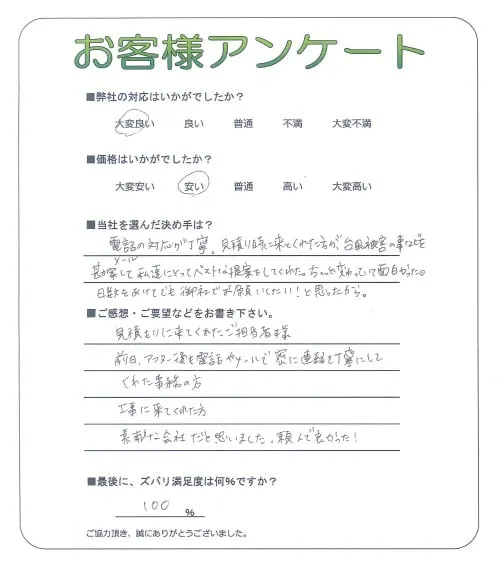 お客様アンケート
■弊社の対応はいかがでしたか?
大変良い 良い 普通 不満 大変不満
■価格はいかがでしたか?
大変安い 安い 普通 高い 大変高い
■当社を選んだ決め手は?
電話の対応が丁寧。見積り時に来てくれた方が、台風被害の事なども
メール
勘案して私達にとってベストな提案をしてくれた。ちょっと変わっていて面白かった。
日数をあけてでも御社でお願いしたい!と思ったから。
■ご感想・ご要望などをお書き下さい。
見積もりに来てくれたご担当者様
前日、アフター後も電話やメールで密に連絡を丁寧にして
くれた事務の方
工事に来てくれた方
素敵な会社だと思いました。頼んで良かった!
■最後に、ズバリ満足度は何%ですか?
100 %
ご協力頂き、誠にありがとうございました。